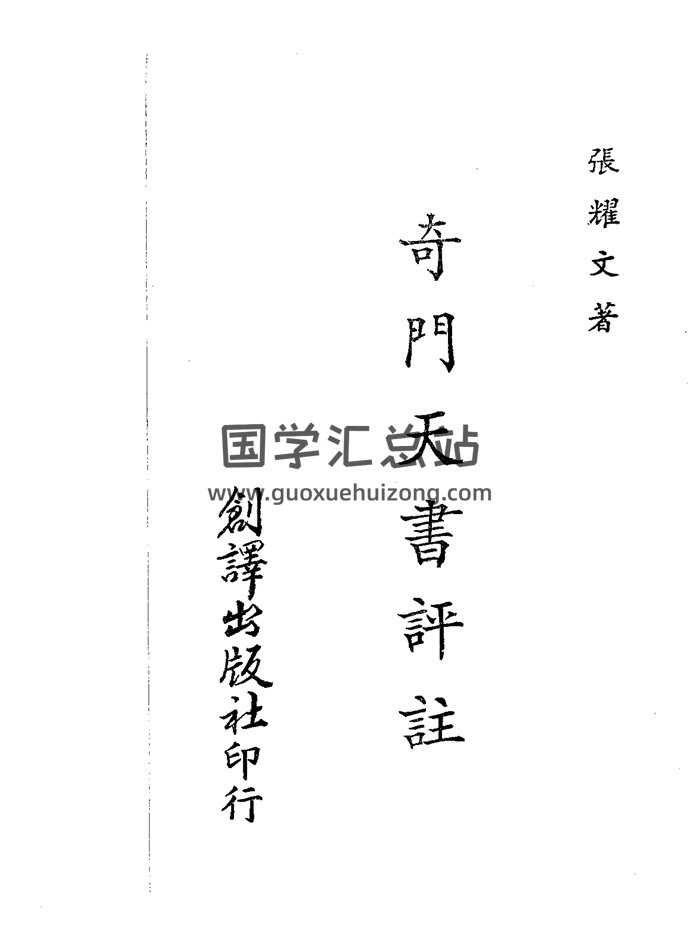 張耀文著
奇門天書評註
創譯出版社印行
国学汇总站
www.guoxuehuizong.com